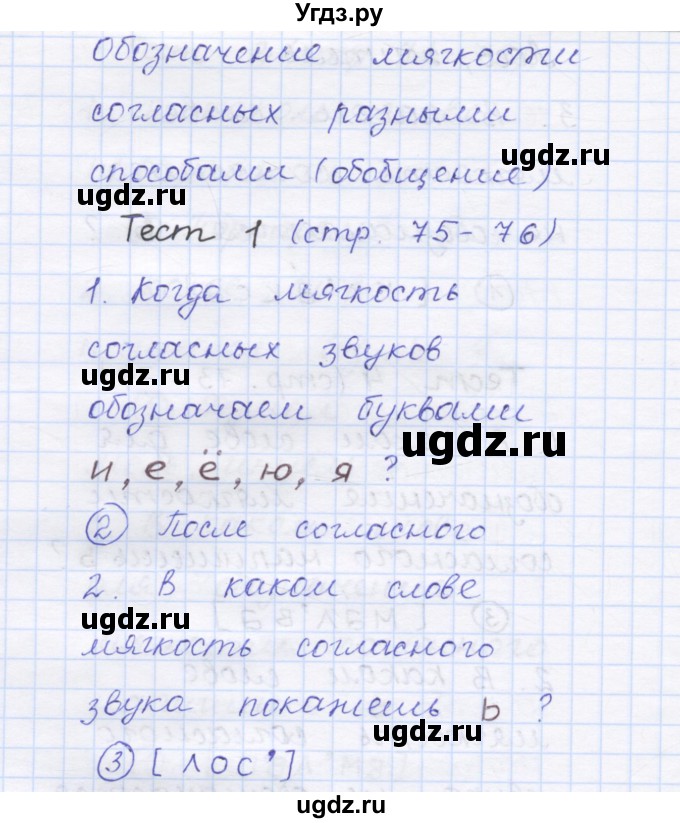 Угдз.ру
Обозначение мягкости
согласных разными
способами (обобщение)
ugdz.ru
ugdz.ru
Тест 1 (стр. 75-76)
1. Когда мягкость
согласных звуков
ugdz.ru
обозначаем буквами
ugdz.ru
и, е, ё, ю, я ?
② После согласного
2. В каком слове
ugdz.ru
мягкость согласного
звука покажешь ь ?
ugdz.ru
③ [лос']
ugdz.ru